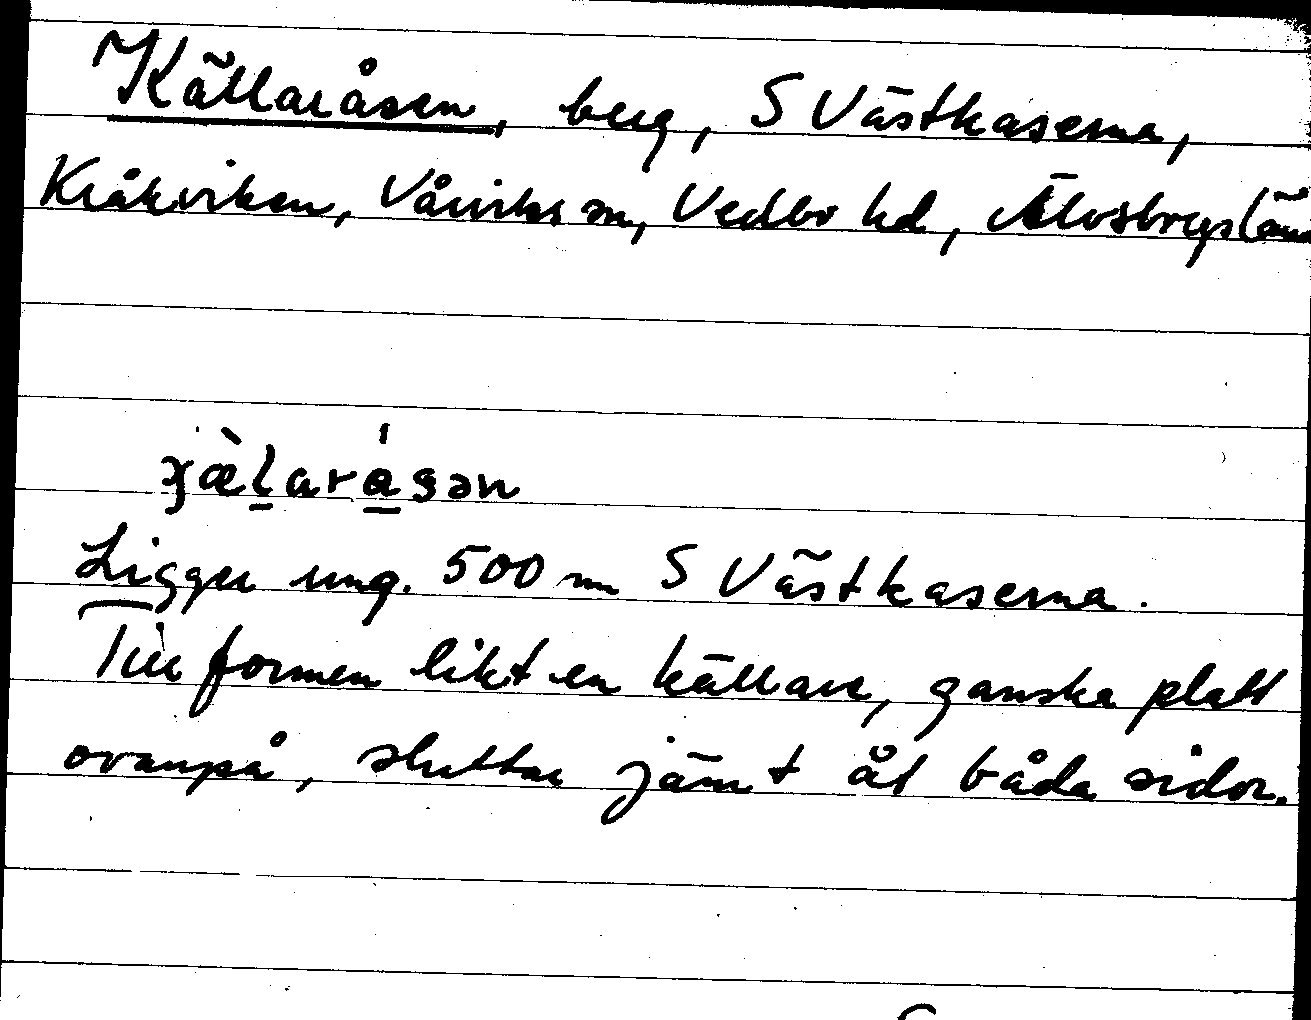 Källaråsen, berg, S Västkaserna,
Kråkviken, Vårviks sn, Vedbo hd, Älvsborgs län
ɟæ̀larásən
Ligger ung. 500 m S Västkaserna.
Till formen likt en källare, ganska platt
ovanpå, sluttar jämt åt båda sidor.